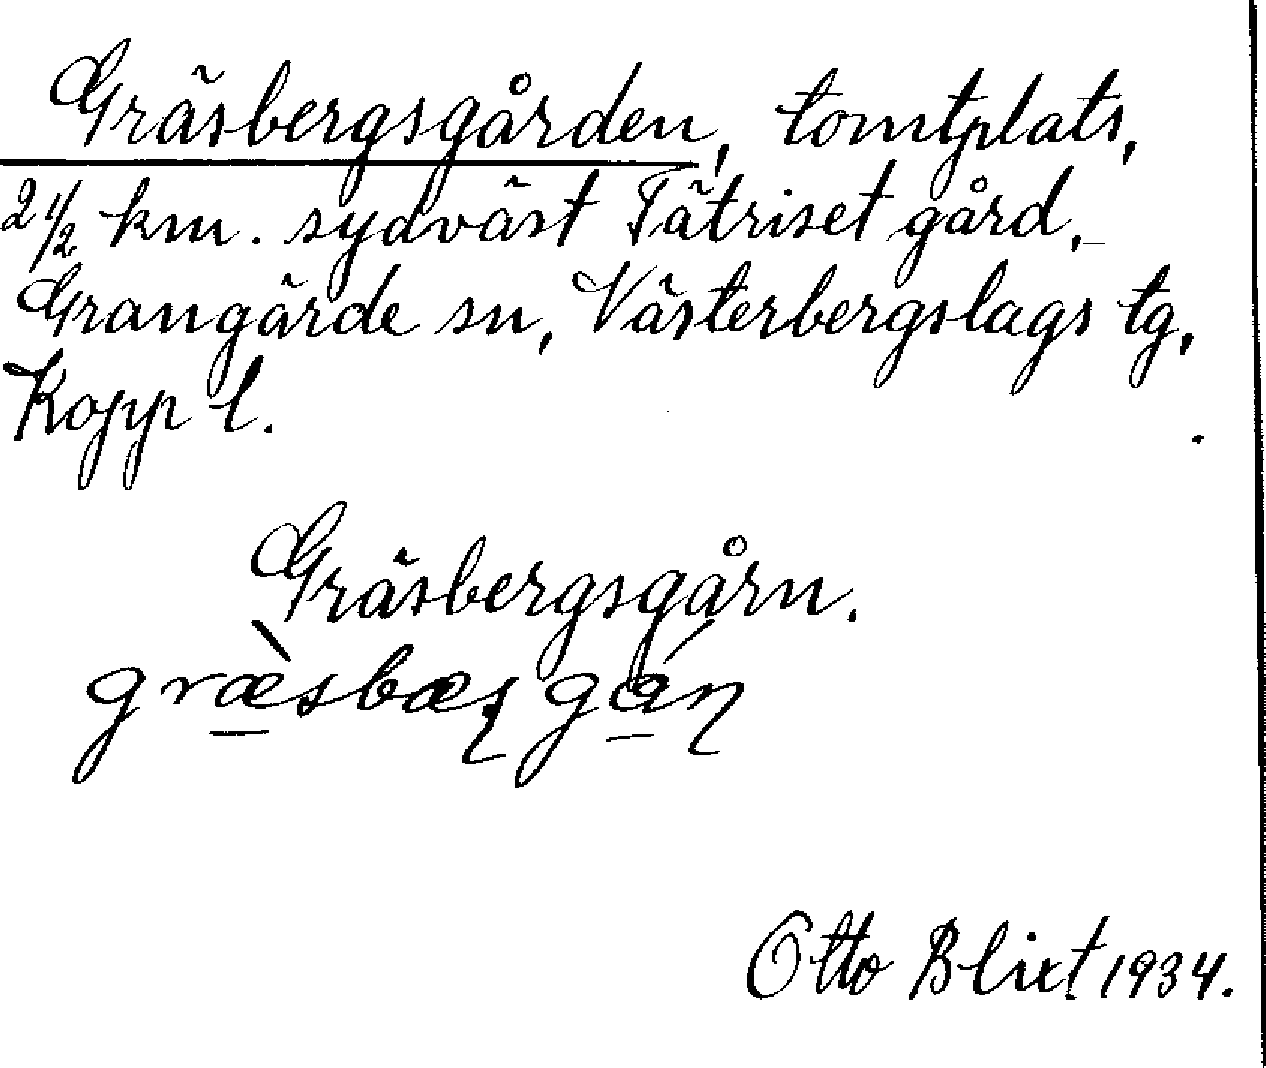 Gräsbergsgården, tomtplats,
2 1/2 km. sydväst Tätriset gård,
Grangärde sn, Västerbergslags tg,
Kopp l.
Gräsbergsgårn.
græ̀sbæʂgáɳ
Otto Blixt 1934.